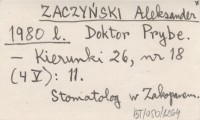 ZACZYŃSKI Aleksander
1980 l. Doktor Prybe.
- Kierunki 26, nr 18
(4 V): 11.
Stomatolog w Zakopanem.
IBT/050/1264